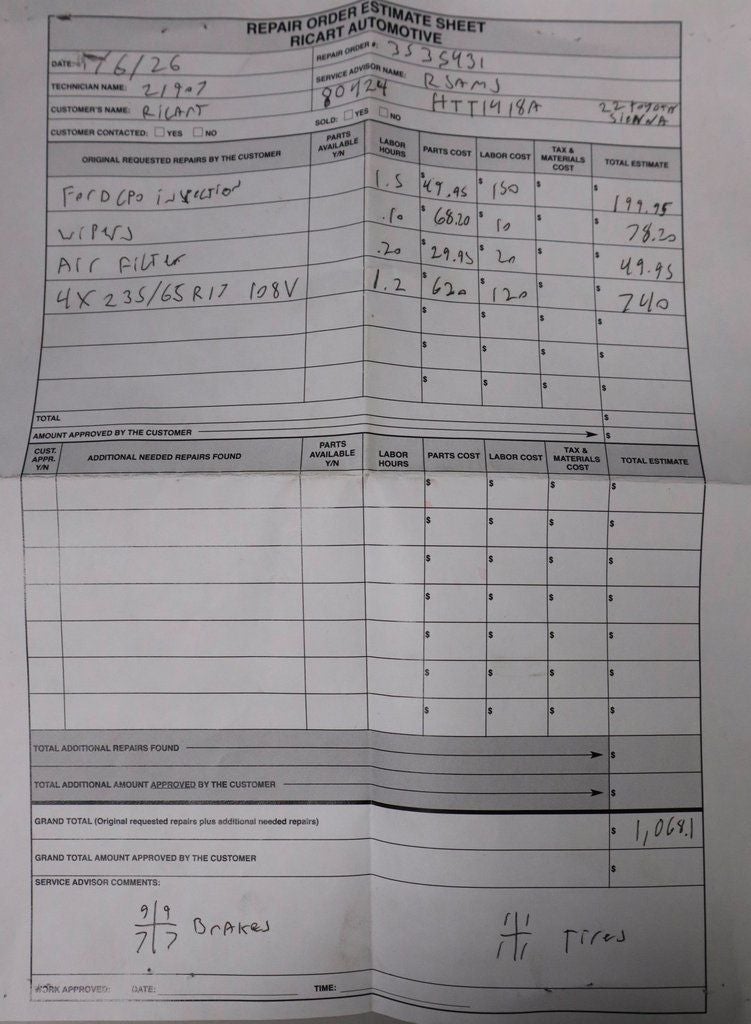 REPAIR ORDER ESTIMATE SHEET
RICART AUTOMOTIVE
DATE: 1/6/26 REPAIR ORDER #: 3535431
TECHNICIAN NAME: 21907 SERVICE ADVISOR NAME: RSAMS
80424
CUSTOMER'S NAME: RICART HTT1418A 22 TOYOTA
SIENNA
CUSTOMER CONTACTED: ☐ YES ☐ NO SOLD: ☐ YES ☐ NO
ORIGINAL REQUESTED REPAIRS BY THE CUSTOMER PARTS AVAILABLE Y/N LABOR HOURS PARTS COST LABOR COST TAX & MATERIALS COST TOTAL ESTIMATE
FORD CPO INSPECTION 1.5 $49.95 $150 $ $199.95
WIPERS .10 $68.20 $10 $ $78.20
AIR FILTER .20 $29.95 $20 $ $49.95
4X 235/65R17 108V 1.2 $620 $120 $ $740
$ $ $ $
$ $ $ $
$ $ $ $
TOTAL $
AMOUNT APPROVED BY THE CUSTOMER $
CUST. APPR. Y/N ADDITIONAL NEEDED REPAIRS FOUND PARTS AVAILABLE Y/N LABOR HOURS PARTS COST LABOR COST TAX & MATERIALS COST TOTAL ESTIMATE
$ $ $ $
$ $ $ $
$ $ $ $
$ $ $ $
$ $ $ $
$ $ $ $
$ $ $ $
TOTAL ADDITIONAL REPAIRS FOUND $
TOTAL ADDITIONAL AMOUNT APPROVED BY THE CUSTOMER $
GRAND TOTAL (Original requested repairs plus additional needed repairs) $1,068.1
GRAND TOTAL AMOUNT APPROVED BY THE CUSTOMER $
SERVICE ADVISOR COMMENTS:
9|9 1|1
BRAKES TIRES
7|7 1|1
WORK APPROVED: DATE: TIME: